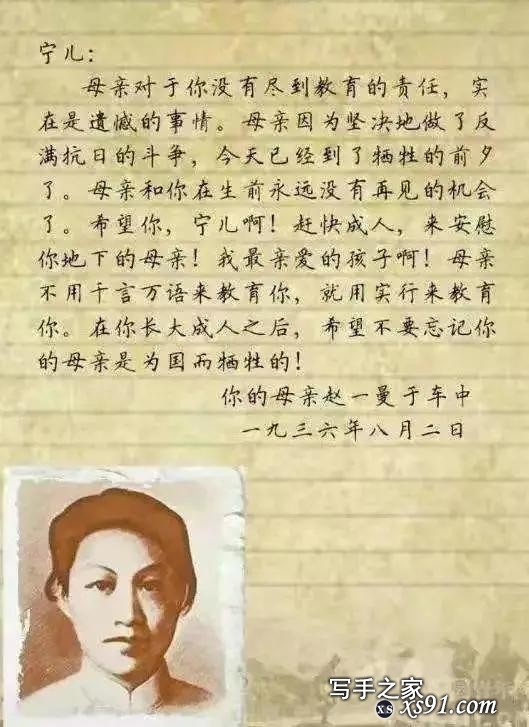 宁儿：
母亲对于你没有尽到教育的责任，实
在是遗憾的事情。母亲因为坚决地做了反
满抗日的斗争，今天已经到了牺牲的前夕
了。母亲和你在生前永远没有再见的机会
了。希望你，宁儿啊！赶快成人，来安慰
你地下的母亲！我最亲爱的孩子啊！母亲
不用千言万语来教育你，就用实行来教育
你。在你长大成人之后，希望不要忘记你
的母亲是为国而牺牲的！
你的母亲赵一曼于车中
一九三六年八月二日
写手之家
XS xs91.com